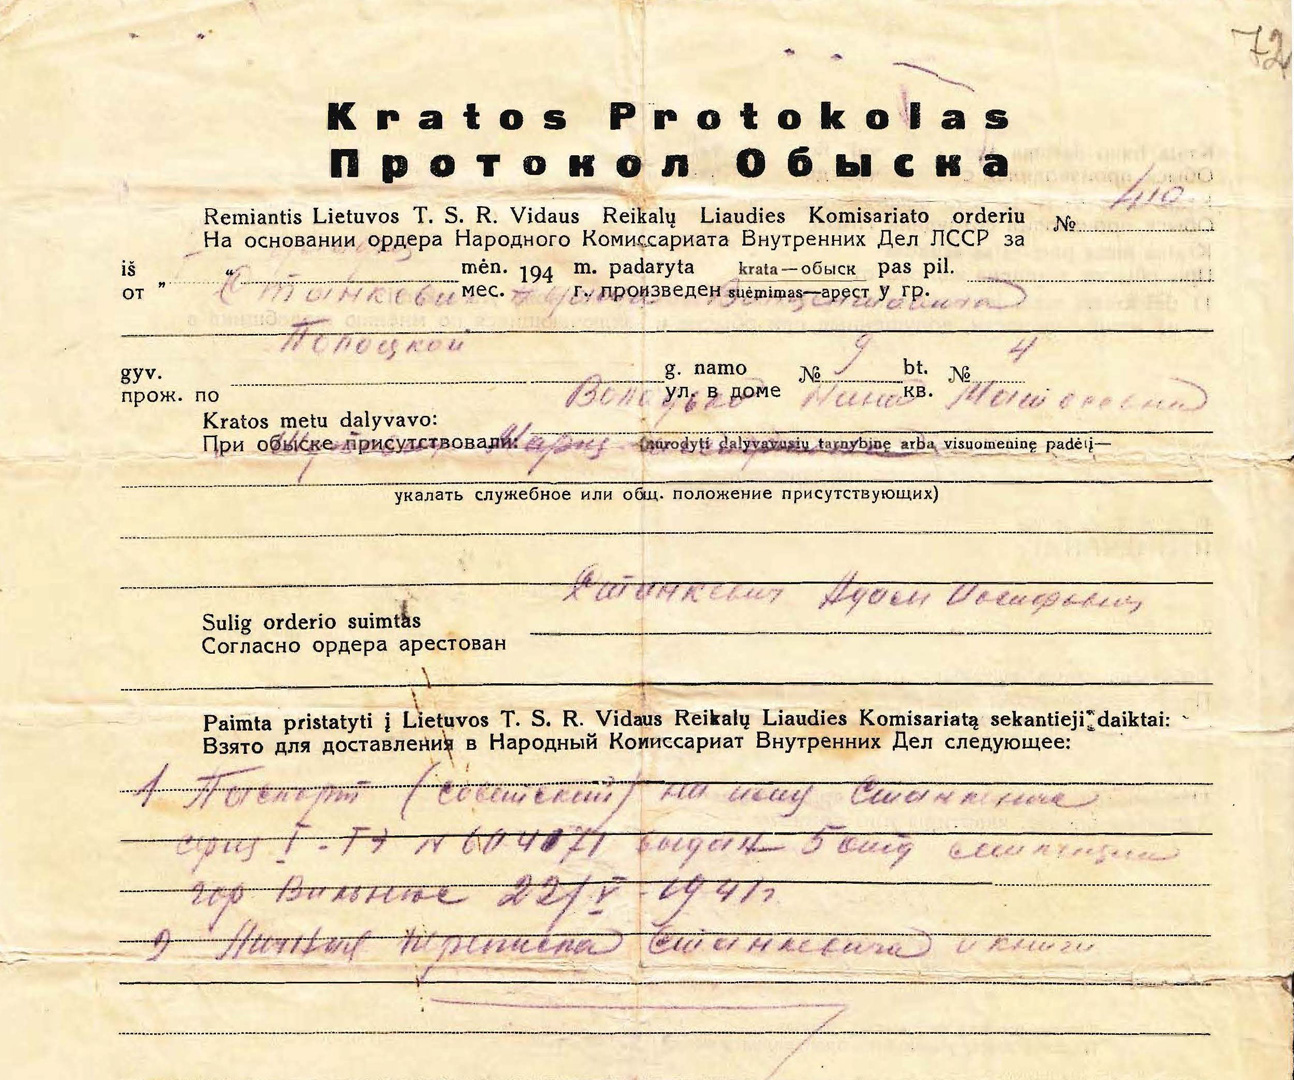 72
Kratos Protokolas
Протокол Обыска
Remiantis Lietuvos T. S. R. Vidaus Reikalų Liaudies Komisariato orderiu № 410
На основании ордера Народного Комиссариата Внутренних Дел ЛССР за
iš „ “ mėn. 194 m. padaryta krata—обыск pas pil.
от " мес. г. произведен suėmimas—арест у гр.
Станкевич
Полоцкой 9 4
gyv. g. namo № bt. №
прож. по ул. в доме кв.
Володько Нина
Kratos metu dalyvavo:
При обыске присутствовали: (nurodyti dalyvavusių tarnybinę arba visuomeninę padėtį—
укалать служебное или общ. положение присутствующих)
Станкевич Адам Иосифович
Sulig orderio suimtas
Согласно ордера арестован
Paimta pristatyti į Lietuvos T. S. R. Vidaus Reikalų Liaudies Komisariatą sekantieji daiktai:
Взято для доставления в Народный Комиссариат Внутренних Дел следующее:
1 Паспорт (советский) на имя Станкевич
N 604071 выдан 5 отд милиции
гор Вильнюс 22/V-1941г.
2 Личная переписка Станкевича и книги